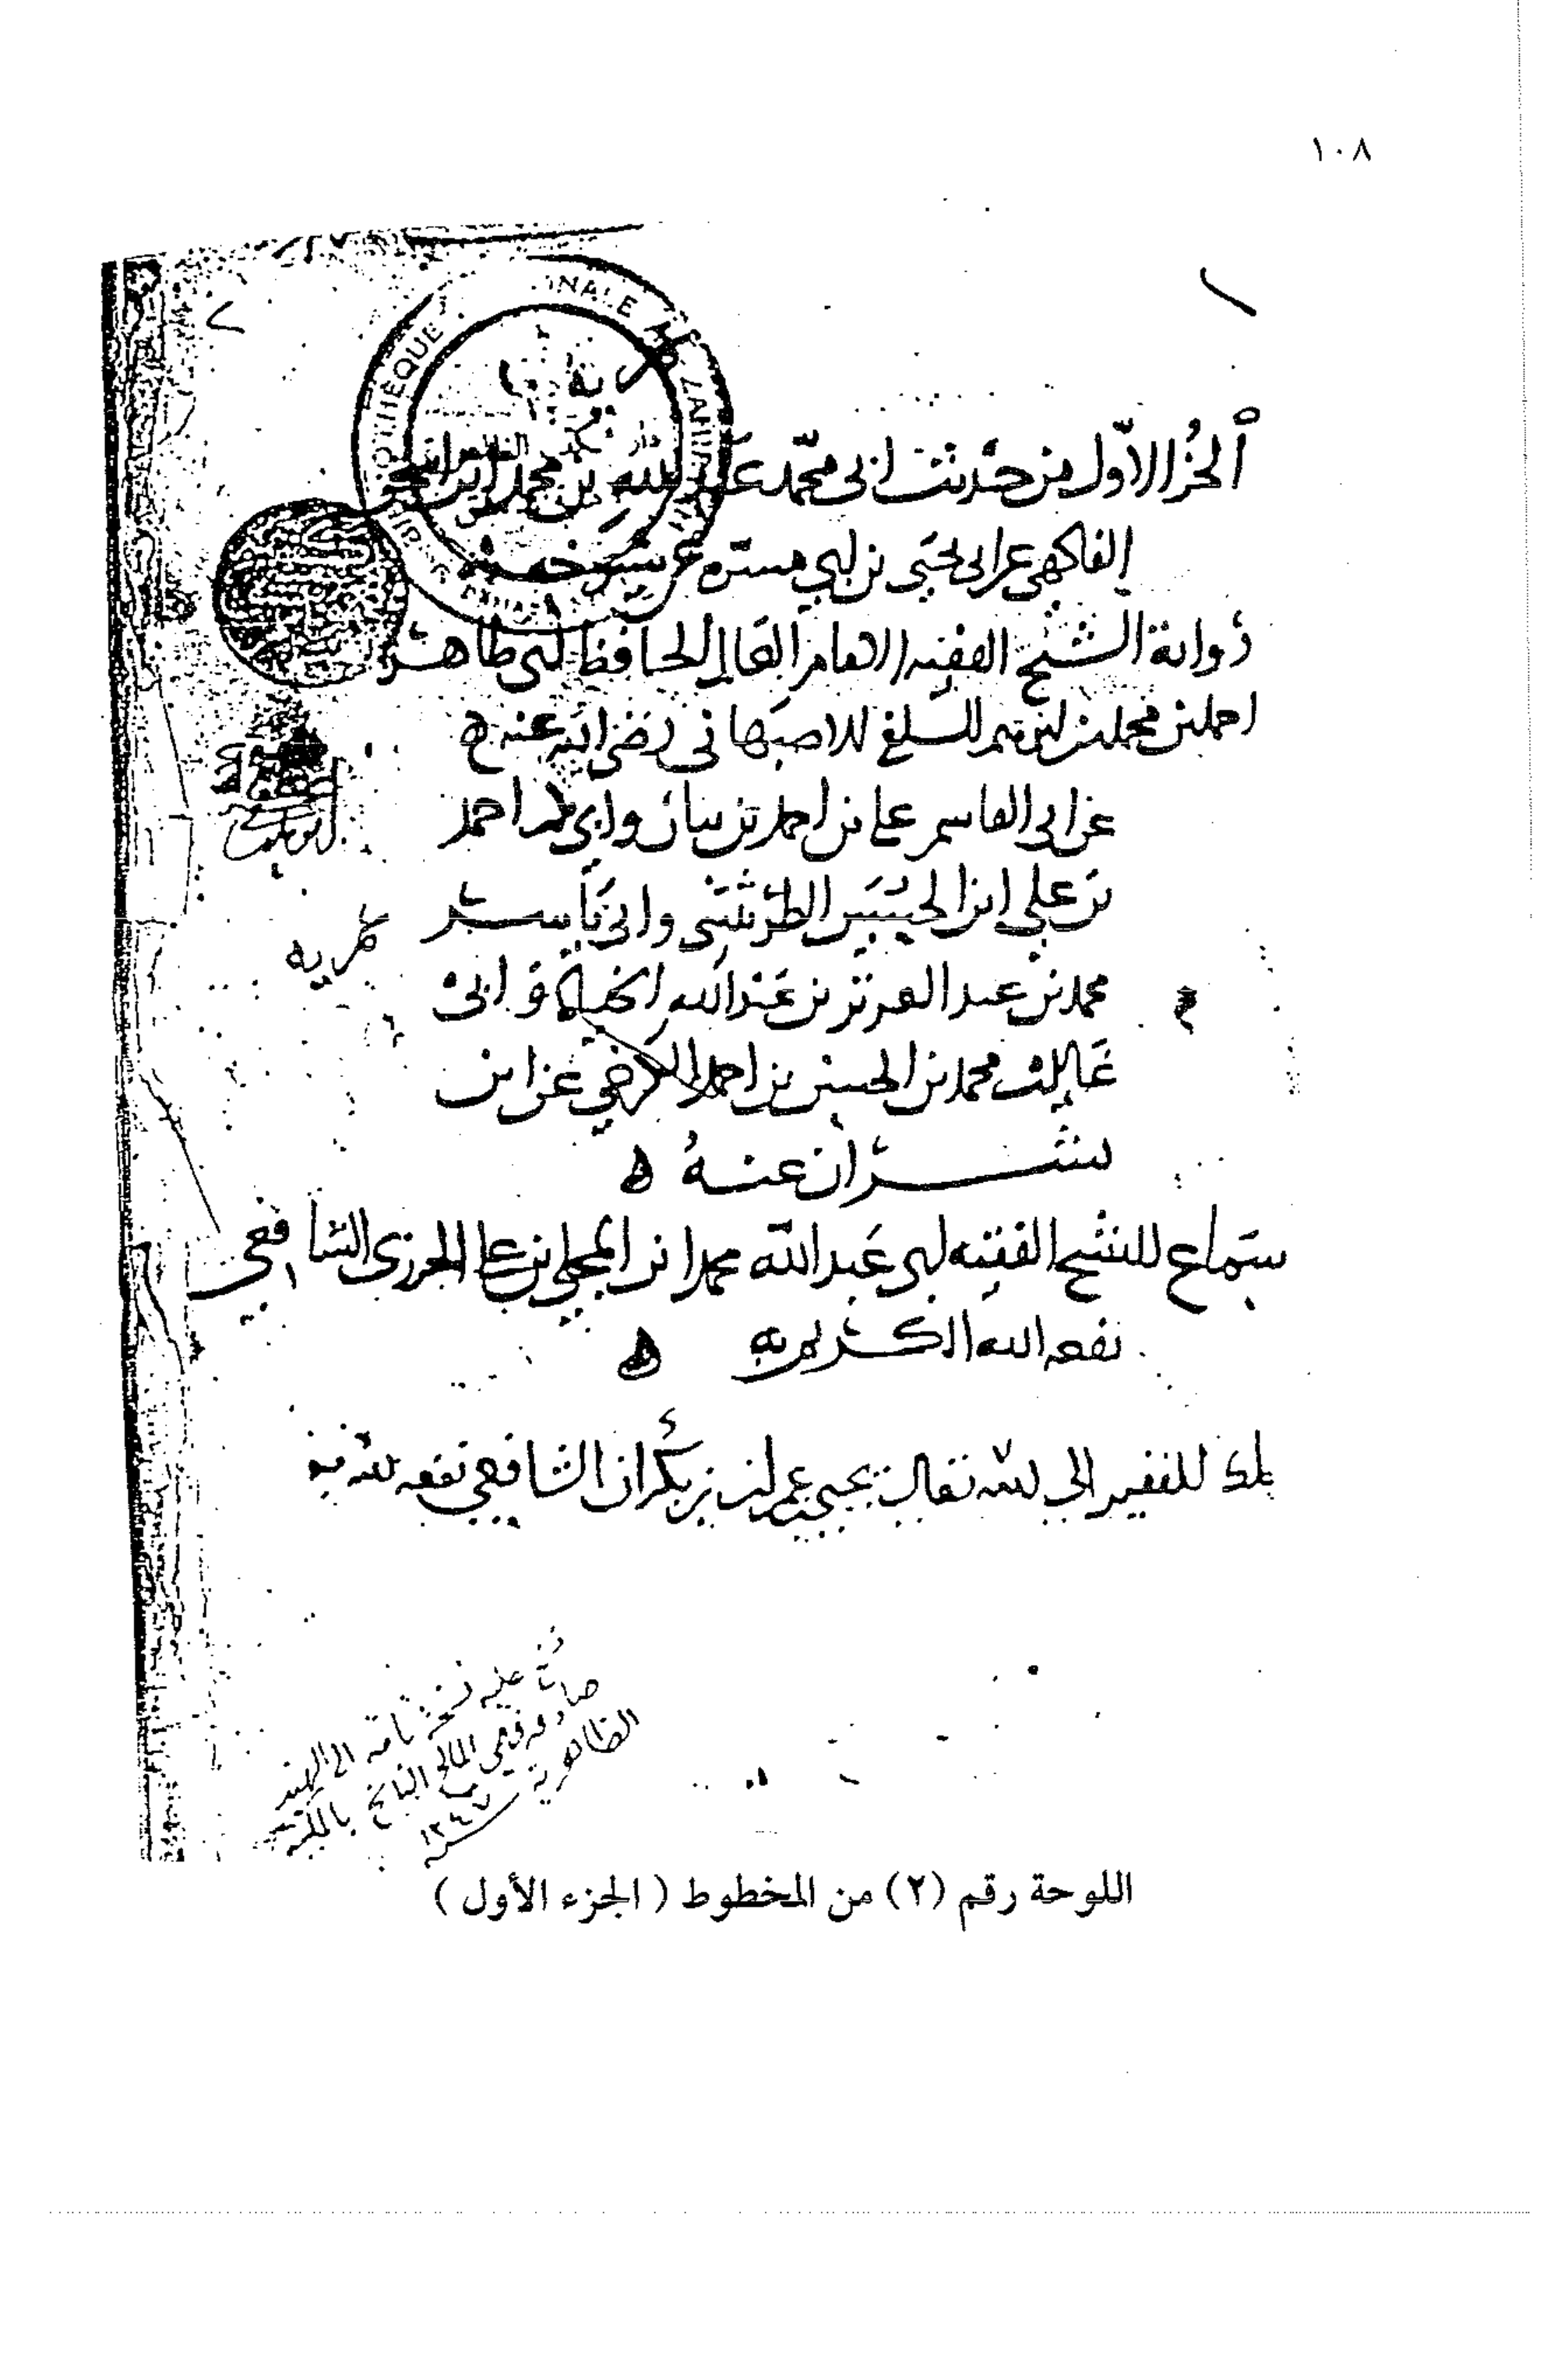 ١٠٨
الجزء الاول من حديث ابى محمد عبد الله بن محمد ابن اسحق
الفاكهي عن ابى يحيى بن ابي مسرة عن شيوخه
رواية الشيخ الفقيه الامام العالم الحافظ ابى طاهر
احمد بن محمد بن احمد السلفي الاصبهاني رضى الله عنه
عن ابى القاسم على بن احمد بن بيان وابى بكر احمد
بن علي ابن الحسين الطريثيثى وابى ياسر
محمد بن عبد العزيز بن عبد الله الخياط وابى
غالب محمد بن الحسن بن احمد الكرخي عن ابن
بشران عنه
سماع للشيخ الفقيه ابى عبد الله محمد ابن المجلي بن على الجزري الشافعي
نفعه الله الكريم به
ملك للفقير الى الله تعالى يحيى بن عمر بن بكران الشافعي نفعه الله به
على نسخة تامة الى الهند
المالح الناسخ بالمكتبة
الظاهرية
سنة ١٣٤٧
اللوحة رقم (٢) من المخطوط (الجزء الأول)